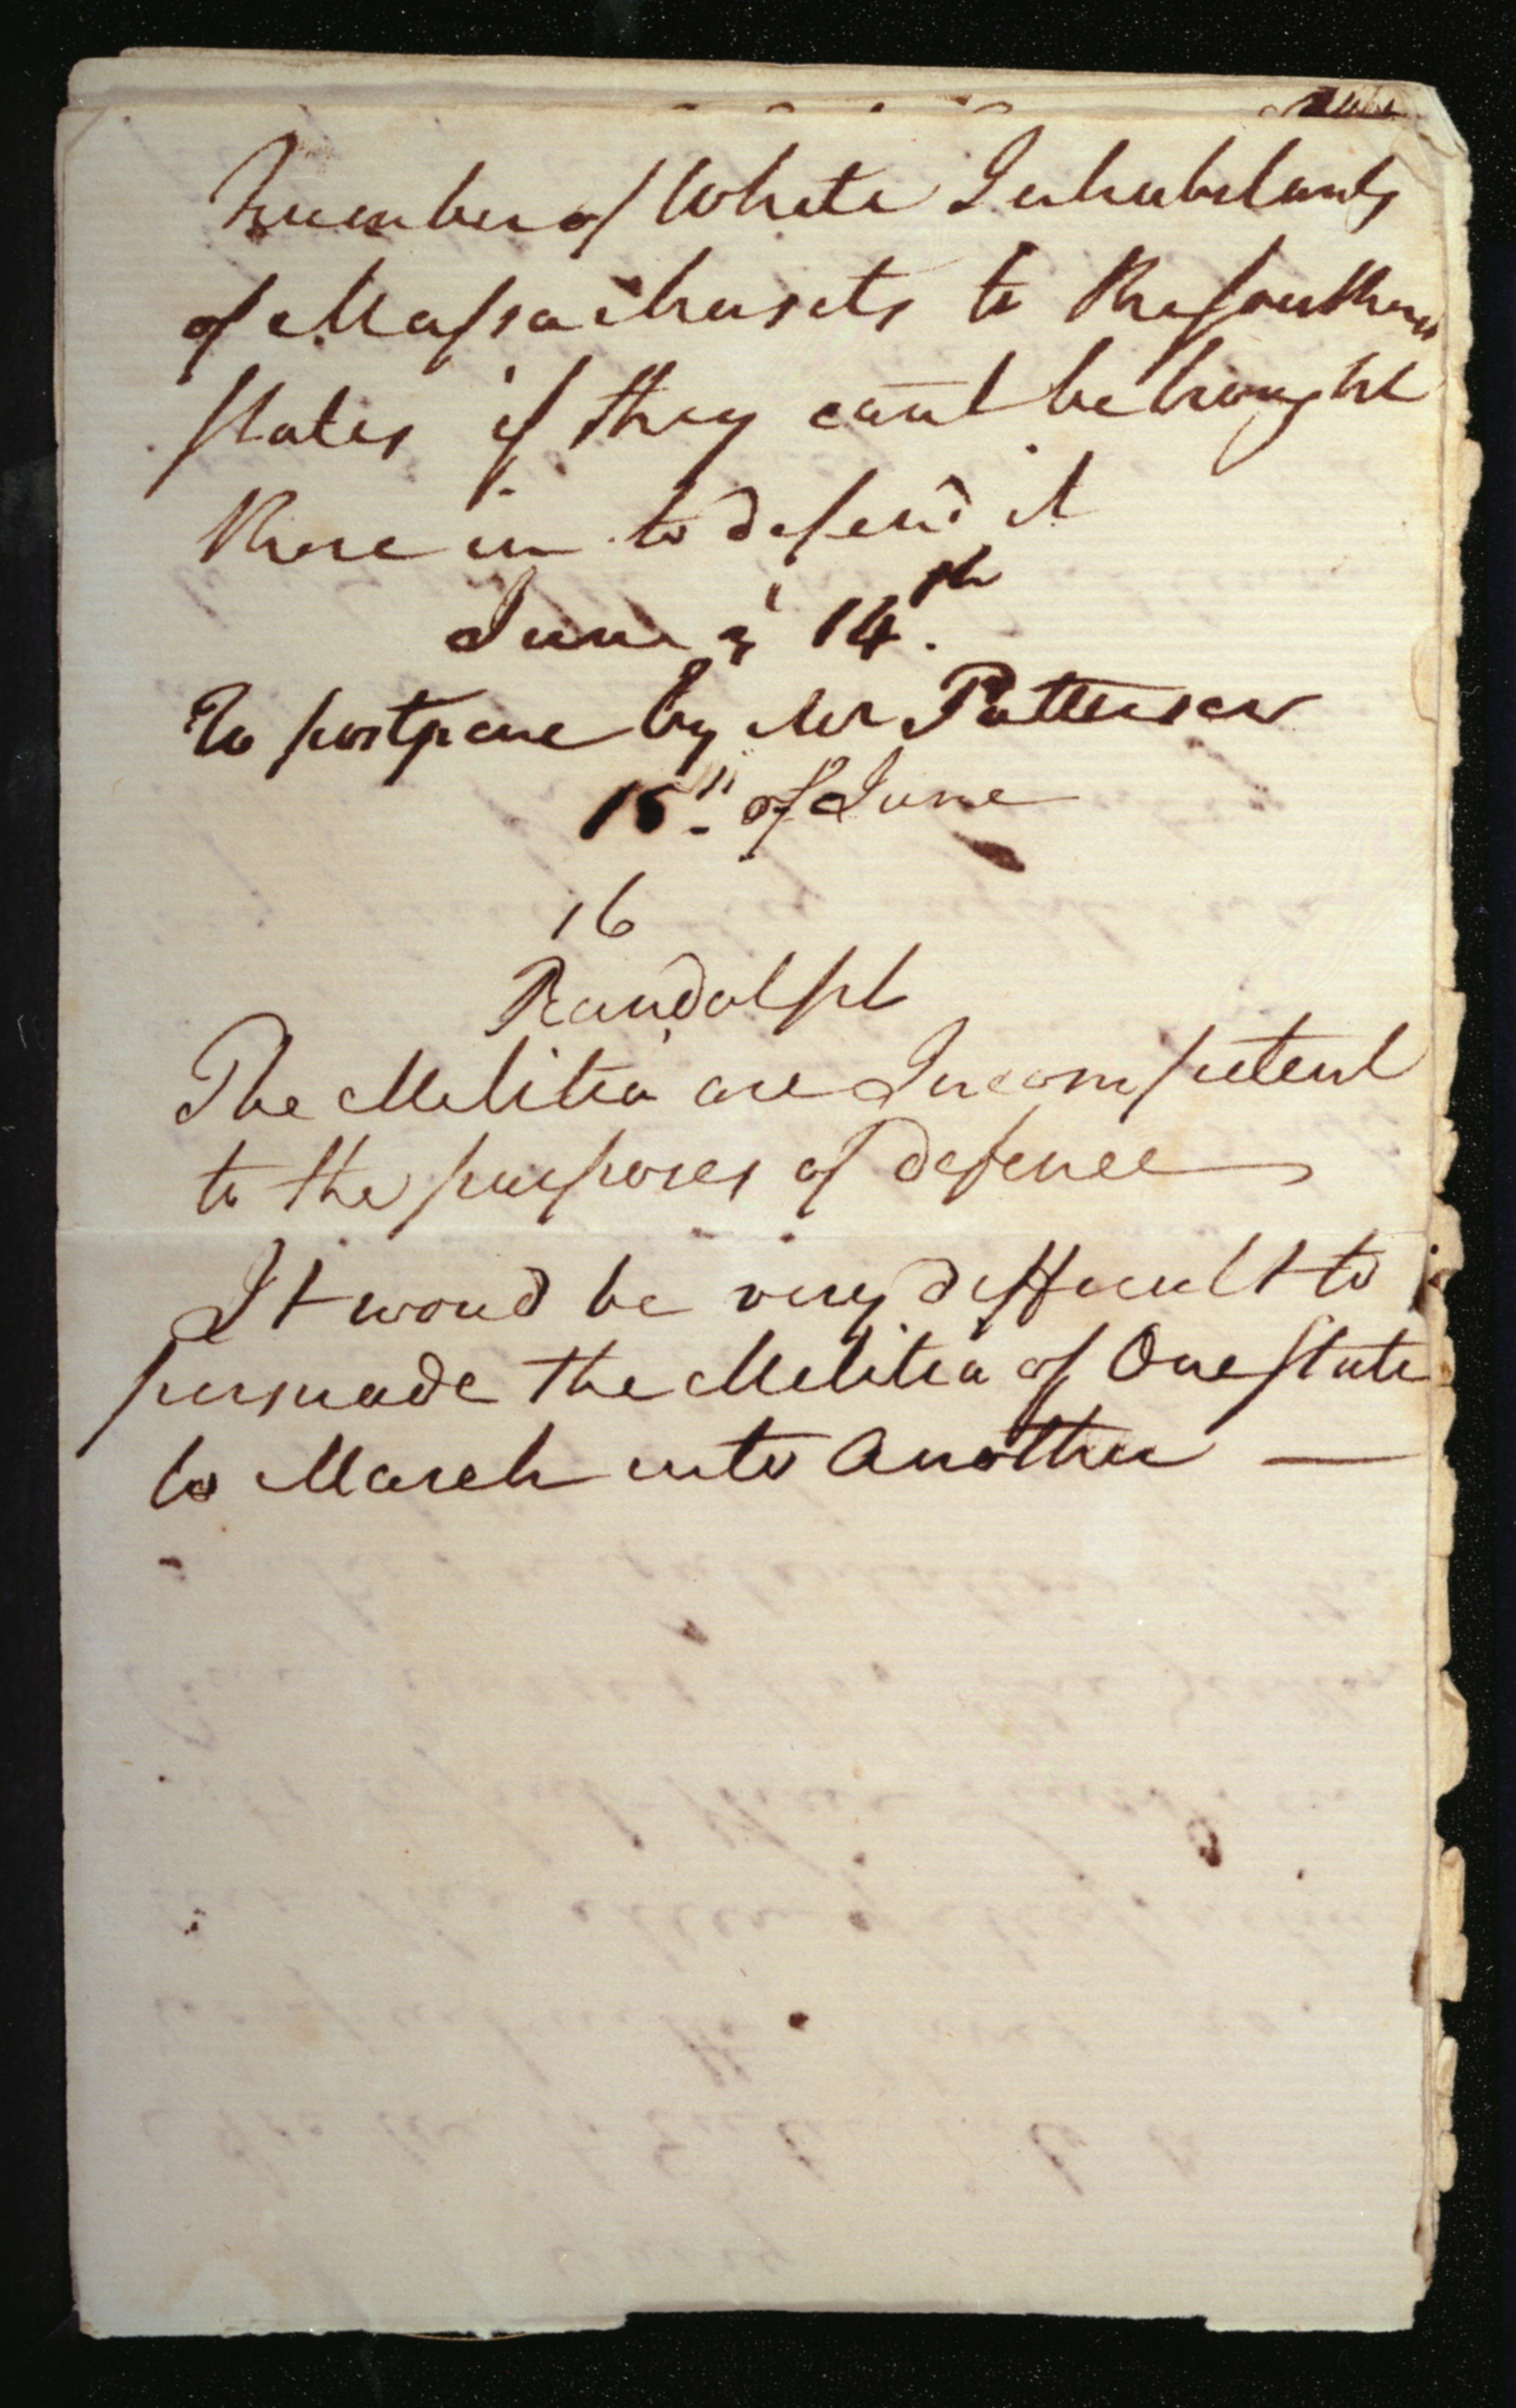 Number of White Inhabitants
of Massachusets to the southern
states if they cant be brought
there in to defend it
June 14th.
To postpone by Mr Patterson
15th of June
16
Randolph
The Melitia are Incompetent
to the purposes of defence
It woud be very difficult to
persuade the Melitia of One state
to March into Another —